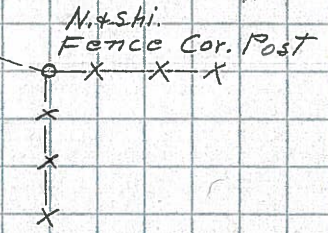 N.&shi.
Fence Cor. Post